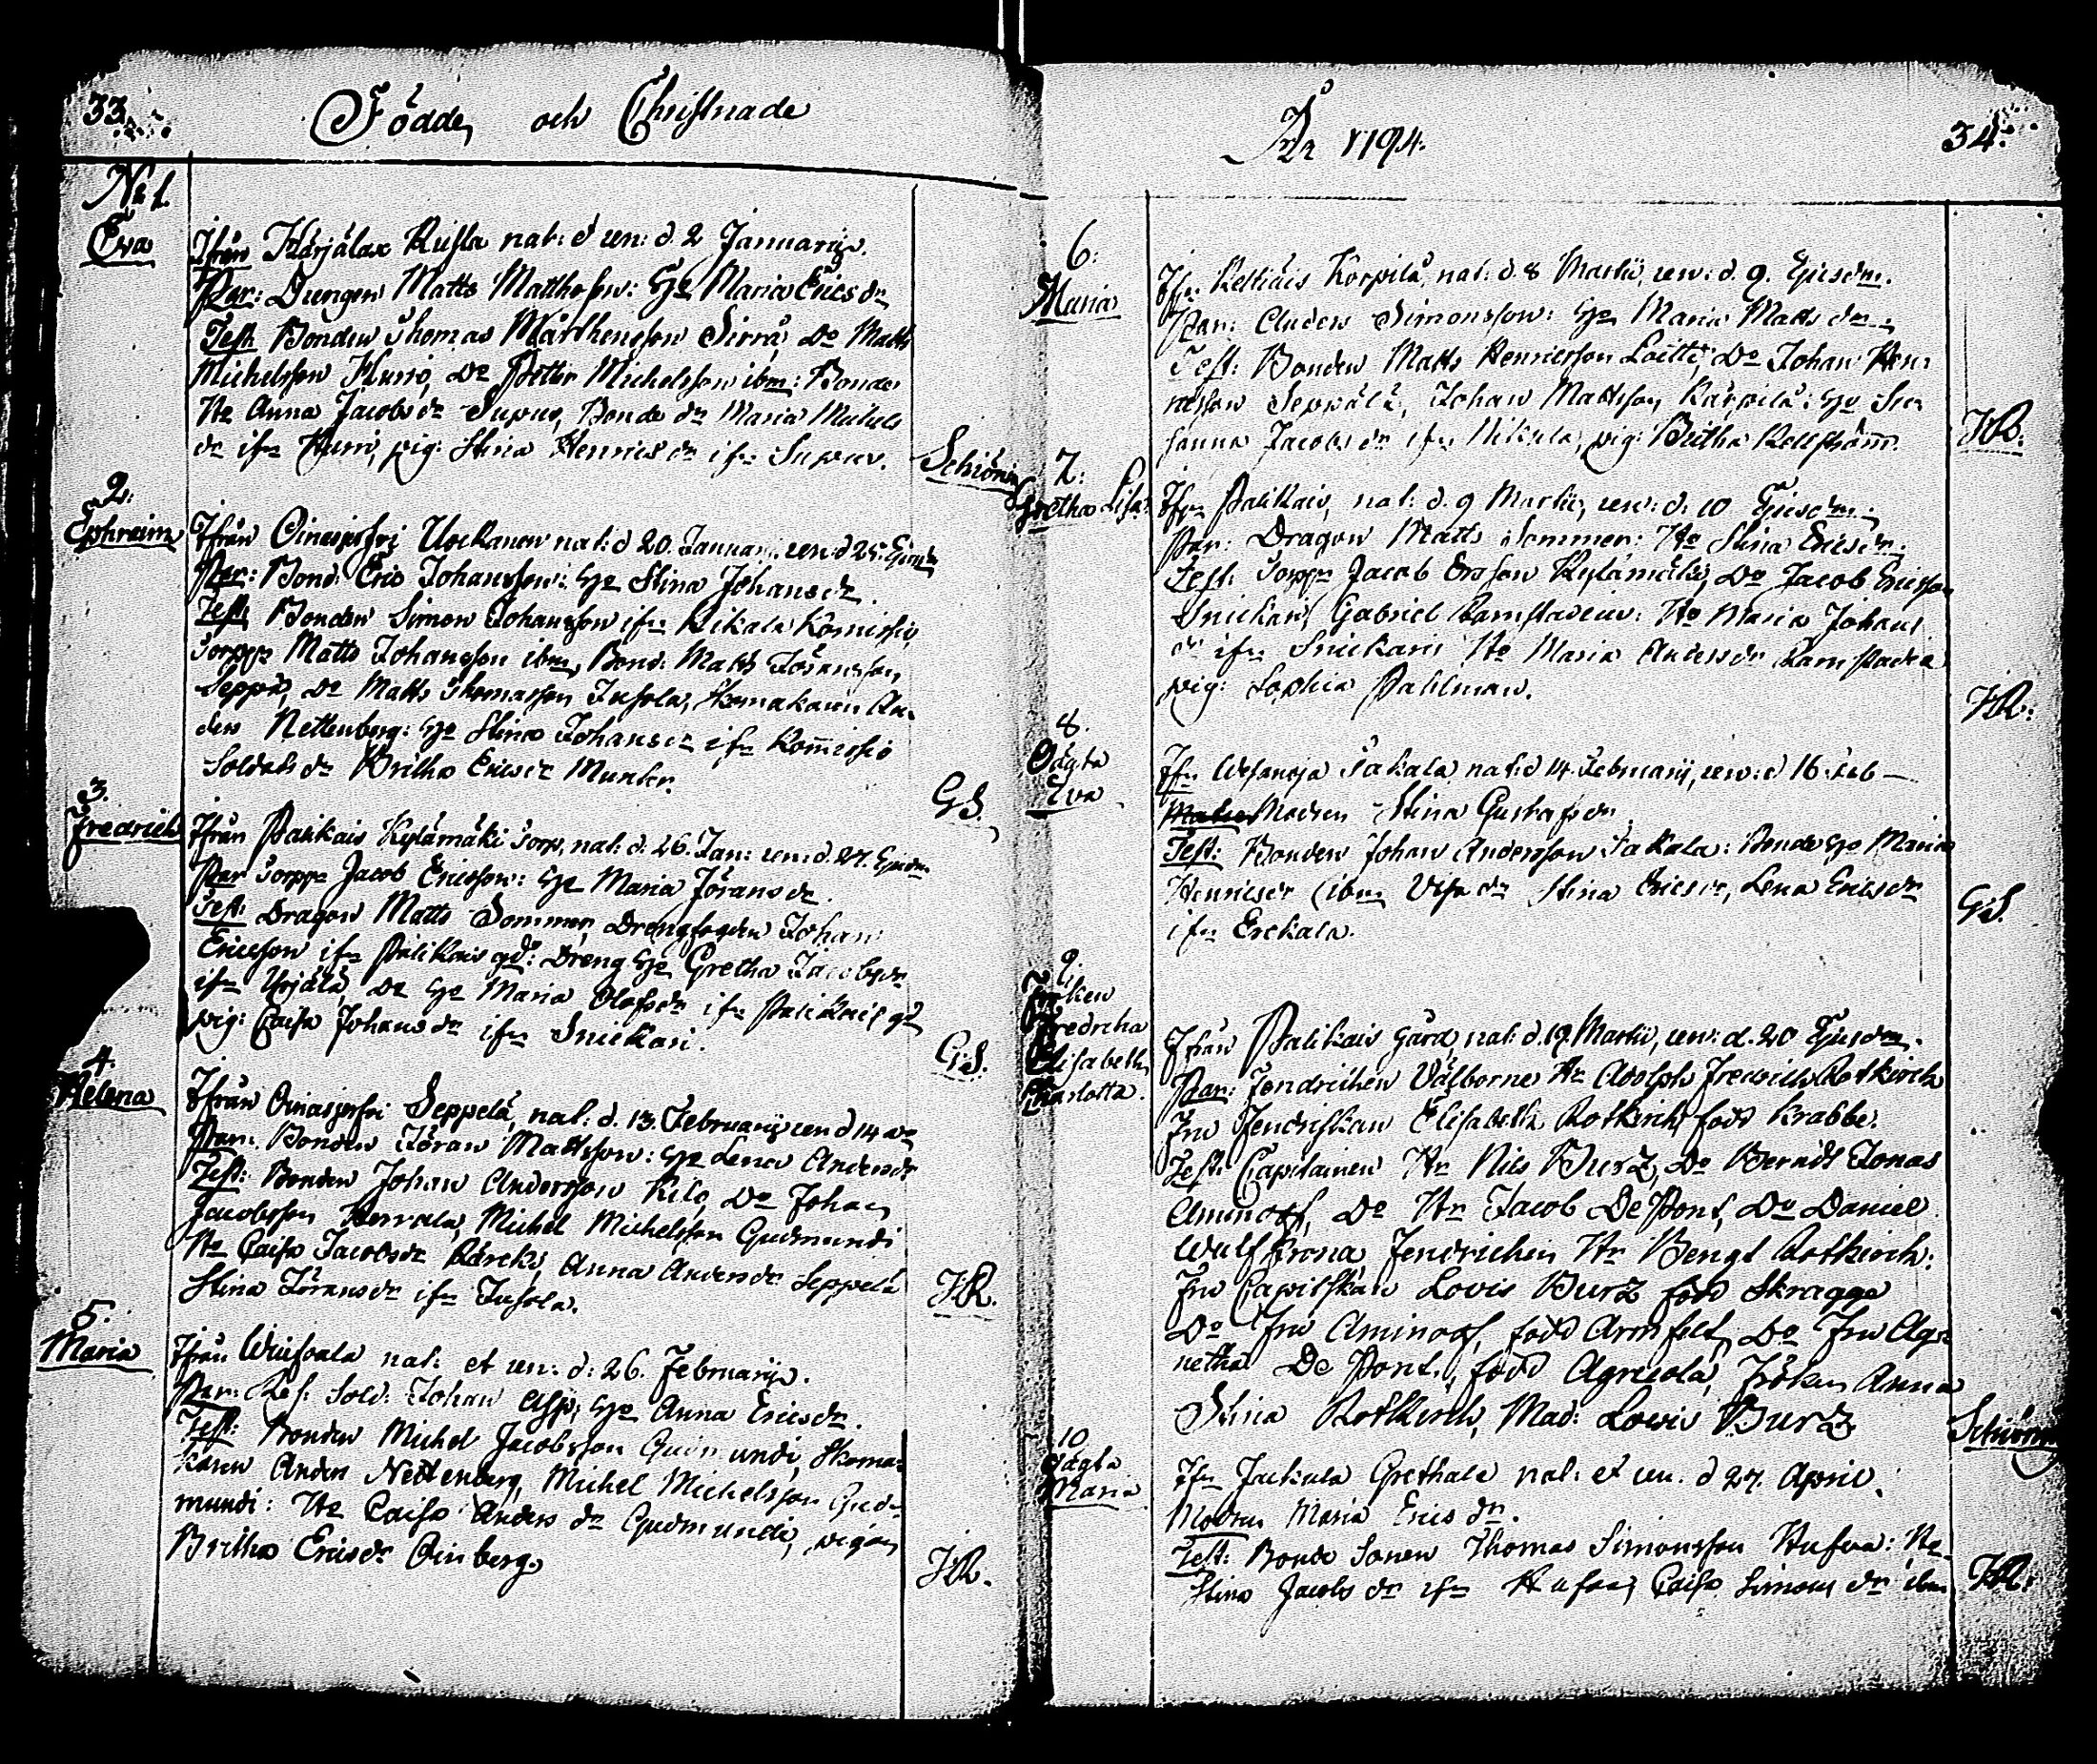 33.
Födde, och Christnade
No 1.
Eva
Ifrån Karjalax Rusla nat: & ren: d. 2 Januarij.
Par: Drengen Matts Matthsson: H:o Maria Ericsdr
Test: Bonden Thomas Marthensson Sirrä, Do Matts
Michelsson Hurri, Do Petter Michelsson ibm: Bonde
H:o Anna Jacobsdr Supus, Bonde dr Maria Michels
dr ifr Hurri, pig: Stina Henricsdr ifr Supus.
Schiöring
2:
Ephreim
Ifrån Oinasjerfvi nat: d 20. Januari, ren: d 25: Ejusdm
Par: Bond: Eric Johansson: Hu Stina Johansdr.
Test: Bonden Simon Johansson ifr Kikala Komissio,
Torpr Matts Johansson ibm, Bond: Matts Jöransson
Seppä, Do Matts Thomasson Jusola, Skomakaren An-
ders Nettenberg: Hu Stina Johansdr ifr Komissio
Soldats dr Britha Ericsdr Munter.
GS.
3.
Fredrich
Ifrån Palikais Kylämäki Torp, nat: d. 26. Jan: ren: d. 27. Ejusdm
Par: Torpr Jacob Ericsson: Hu Maria Jöransdr.
Test: Dragon Matts Sommer, Drengfogden Johan
Ericsson ifr Palikais gd: Dreng Hu Gretha Jacobsdr
ifr Urjälä, Do Hu Maria Olofsdr ifr Palikais gd
pig: Caisa Johansdr ifr Snickari.
G.S.
4.
Helena
Ifrån Oinasjerfvi Seppelä, nat: d. 13. Februarij ren d 14 Do
Par: Bonden Jöran Mattsson: Hu Lena Andersdr
Test: Bonden Johan Andersson Kilo, Do Johan
Jacobsson, Michel Michelsson Gudmundi
Ho Caisa Jacobsdr, Anna Andersdr Seppelä
Stina Jöransdr ifr Jusola.
JR.
5.
Maria
Ifrån nat: et ren: d: 26. Februarij.
Par: Ref: Sold: Johan Asp, Hu Anna Ericsdr.
Test: Bonden Michel Jacobsson Gudmundi, Skoma-
karen Anders Nettenberg, Michel Michelsson Gud-
mundi: Ho Caisa Andersdr Gudmundi, pigan
Britha Ericsdr Oinberg
JR.
År 1794.
34.
6:
Maria
Ifr Kettiäis Korpilä, nat: d. 8 Martii, ren: d. 9. Ejusdm.
Par: Anders Simonsson: Hu Maria Mattsdr.
Test: Bonden Matts Henricsson Loitti, Do Johan Hen-
ricsson Seppälä, Johan Mattsson Kårpilä: Hu Su-
sanna Jacobsdr ifr Nikula, pig: Britha Kellström.
JR.
7:
Gretha Lisa
Ifr Palikais, nat: d. 9 Martii, ren: d: 10 Ejusdm.
Par: Dragon Matts Sommer: Ho Stina Ericsdr.
Test: Torpr Jacob Ersson Kylämäki, Do Jacob Ericsson
Snickari, Gabriel Ramstadius: Ho Maria Johans
dr ifr Snickari Ho Maria Andersdr Ramstadia
pig: Sophia Pahlman.
JR:
8.
Oägta
Eva
Ifr Wesanoja Takala nat: d 14. Februarij, ren: d 16. Feb
Modren Stina Gustafsdr
Test: Bonden Johan Andersson Takala: Bonde Hu Maria
Henricsdr ibm, Stina Ericsdr, Lena Ericsdr
ifr Erckala.
G.S.
9.
Fröken
Fredricha
Elisabeth
Charlotta.
Ifrån Palikais Gård, nat: d. 19. Martii, ren: d. 20 Ejusdm.
Par: Fendrichen Välborne Hr Adolph Fredrich Rotkirch
Fru Fendriskan Elisabeth Rotkirch född Krabbe.
Test: Capitainen Hr Nils Burz, Do Berndt Jonas
Aminoff, Do Hr Jacob De Pont, Do Daniel
Wulfkrona, Fendrichen Hr Bengt Rotkirch:
Fru Capitskan Lovis Burz född Skragge
Do Fru Aminoff, född Armfelt, Do Fru Ag-
netha De Pont, född Agricola, Fröken Anna
Stina Rotkirch, Mad: Lovis Burz
Schiöring
10
Oägta
Maria
Ifr Jackula Grethala nat: et ren. d 27. April.
Modren Maria Ericsdr.
Test: Bonde Sonen Thomas Simonsson Hufva: Ho
Stina Jacobsdr ifr Hufva, Caisa Simonsdr ibm
JR.